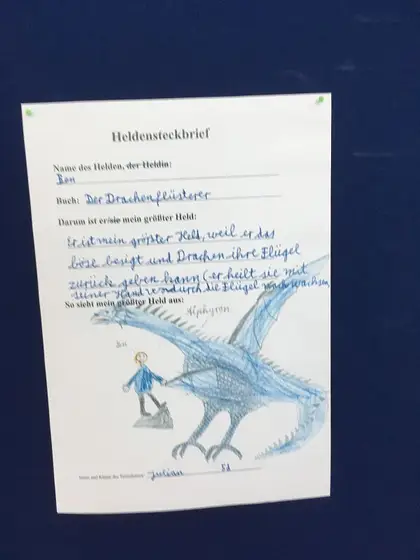 Heldensteckbrief
Name des Helden, der Heldin:
Ben
Buch: Der Drachenflüsterer
Darum ist er/sie mein größter Held:
Er ist mein größter Held, weil er das
böse besigt und Drachen ihre Flügel
zurück geben kann (er heilt sie mit
seiner Hand wodurch die Flügel nach wachsen
So sieht mein größter Held aus:
Alphyron
Ben
Name und Klasse des Teilnehmers: Julian 5d